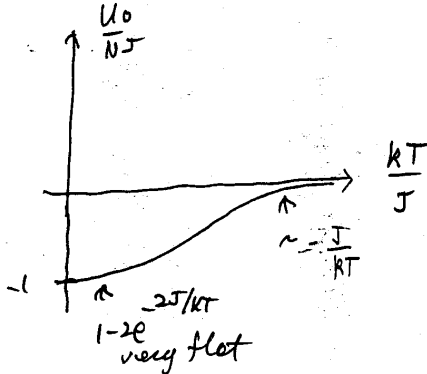 U₀/NJ
kT/J
~ - J/kT
-1
1-2e^-2J/kT
very flat